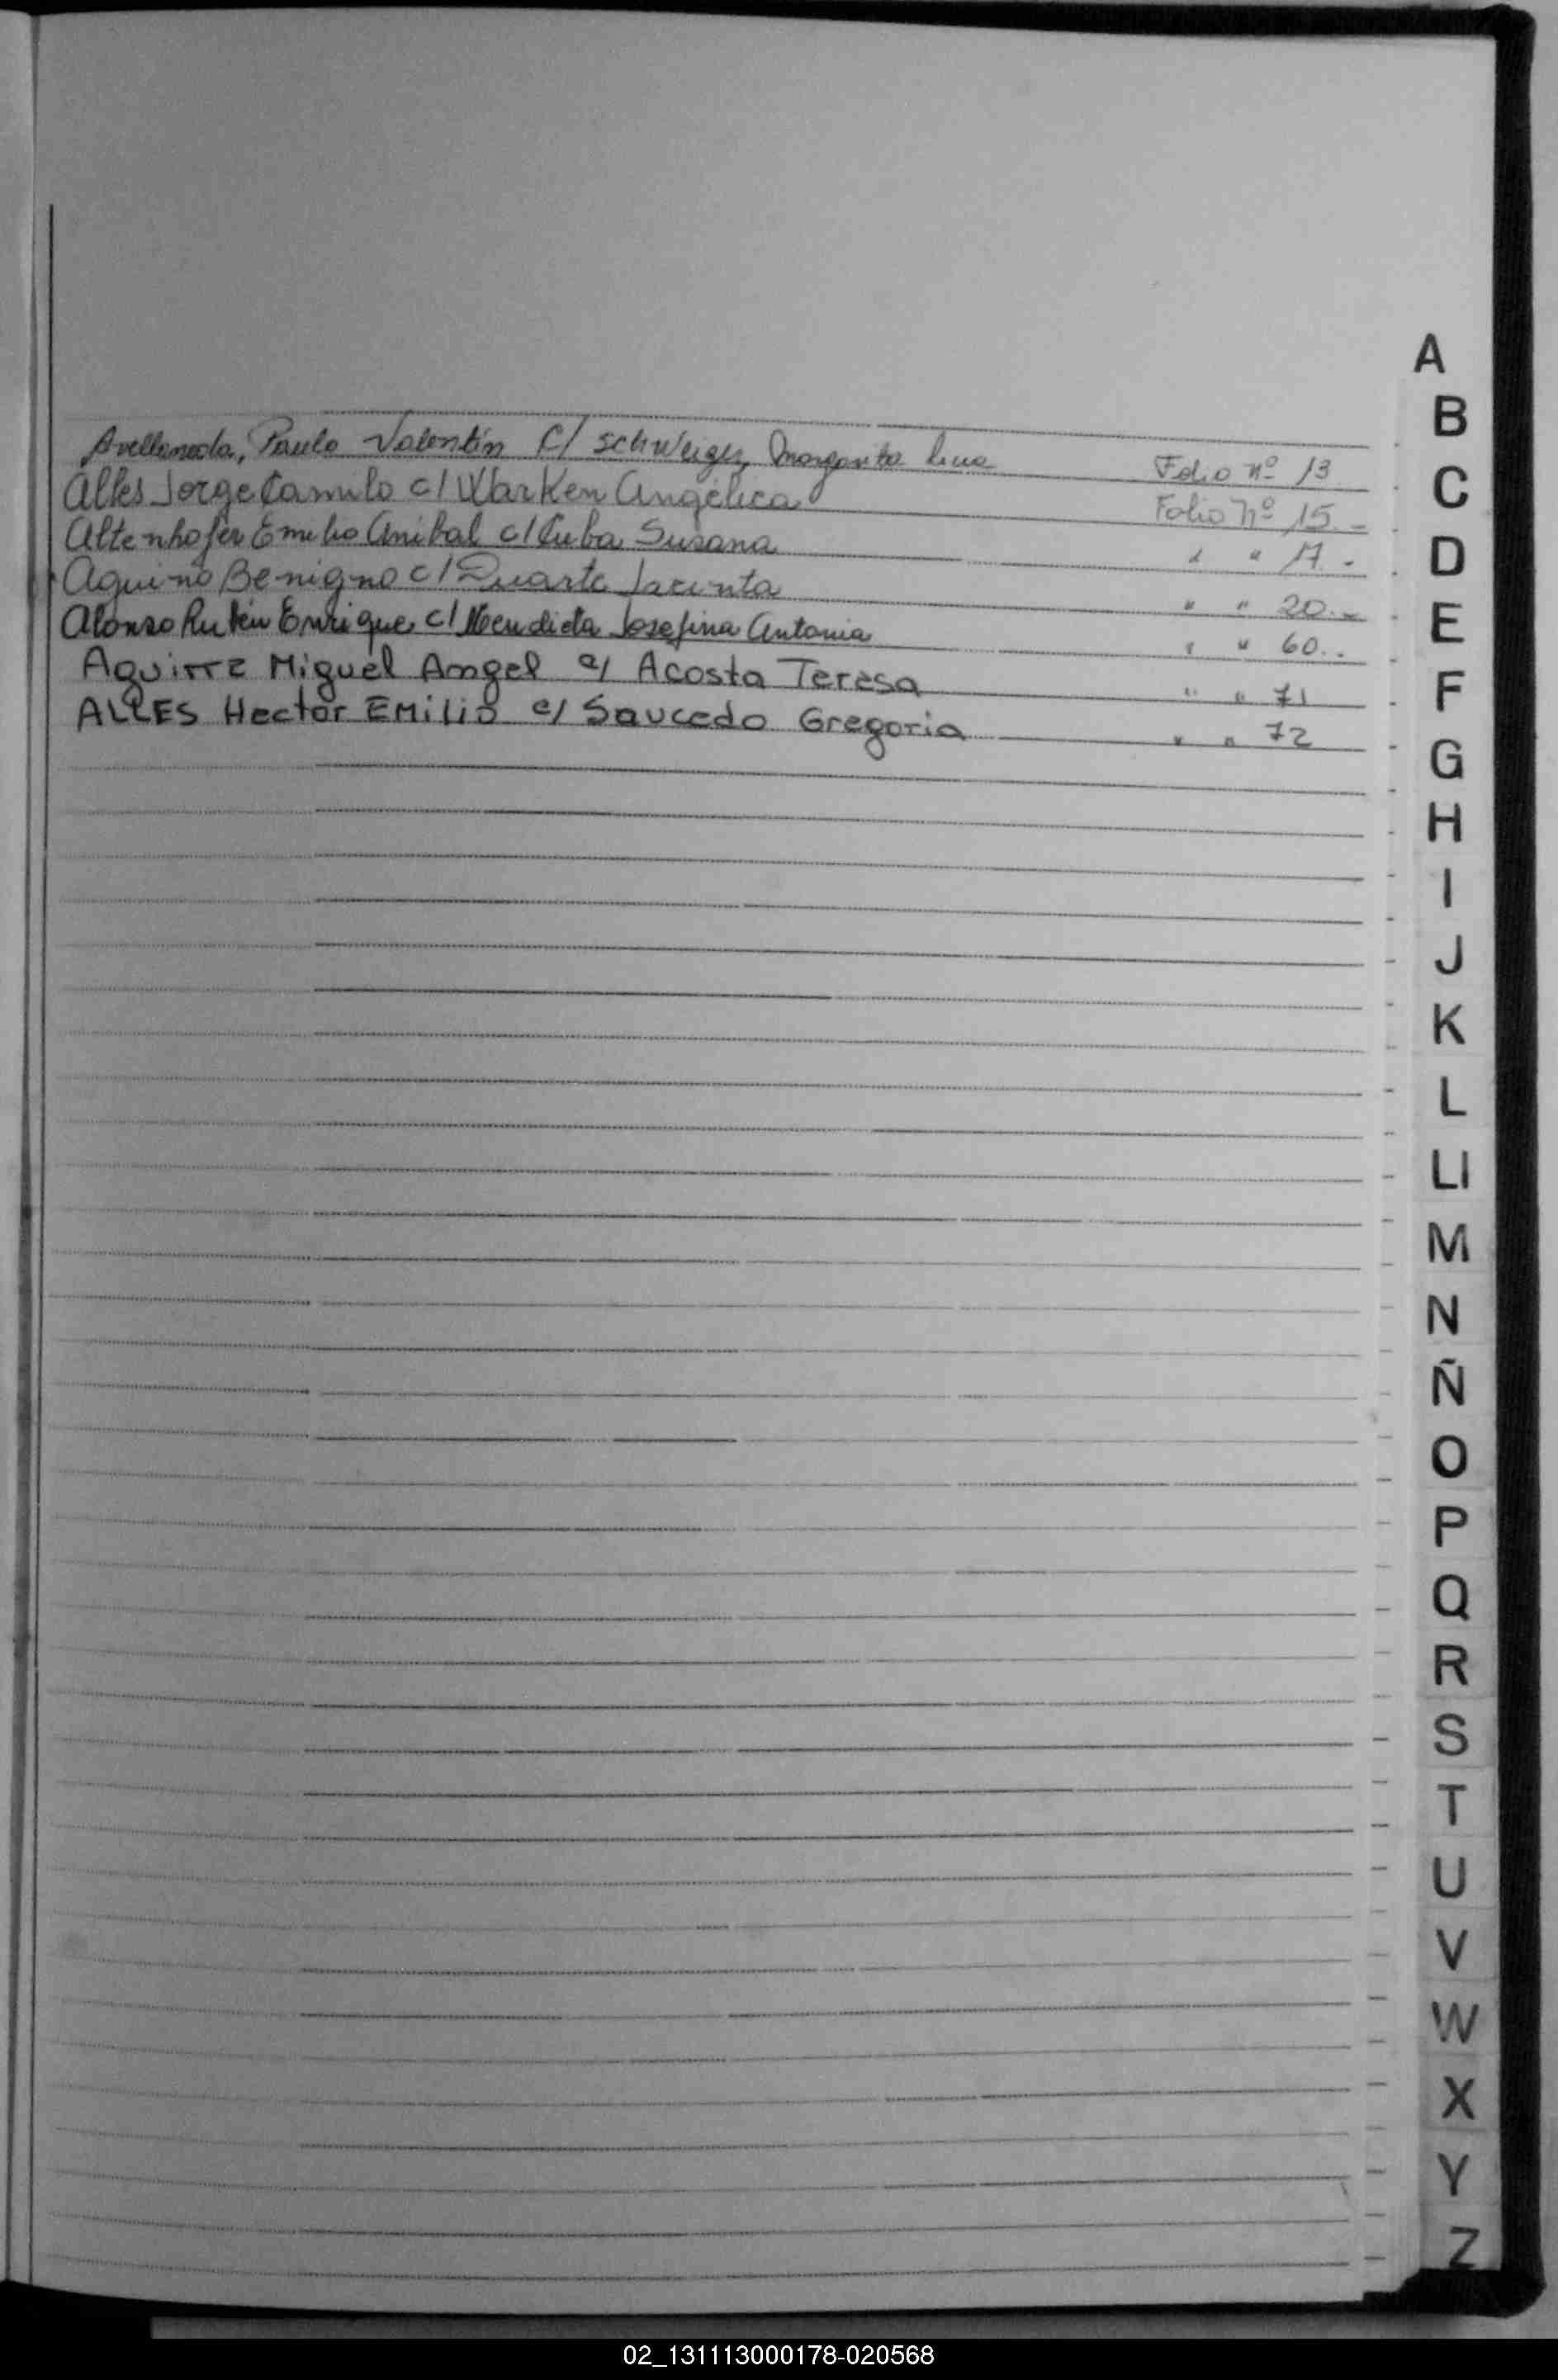 Avellaneda, Paulo Valentín c/ Schweiger, Margarita Lina Folio nº 13
Alles Jorge Camilo c/ Warken Angélica Folio Nº 15.-
Altenhofer Emilio Anibal c/ Cuba Susana " " 17.-
Aquino Benigno c/ Duarte Jacinta " " 20.-
Alonso Rubén Enrique c/ Mendieta Josefina Antonia " " 60..
Aguirre Miguel Angel c/ Acosta Teresa " " 71
ALLES Hector EMiliO c/ Saucedo Gregoria " " 72
A
B
C
D
E
F
G
H
I
J
K
L
Ll
M
N
Ñ
O
P
Q
R
S
T
U
V
W
X
Y
Z
02_131113000178-020568